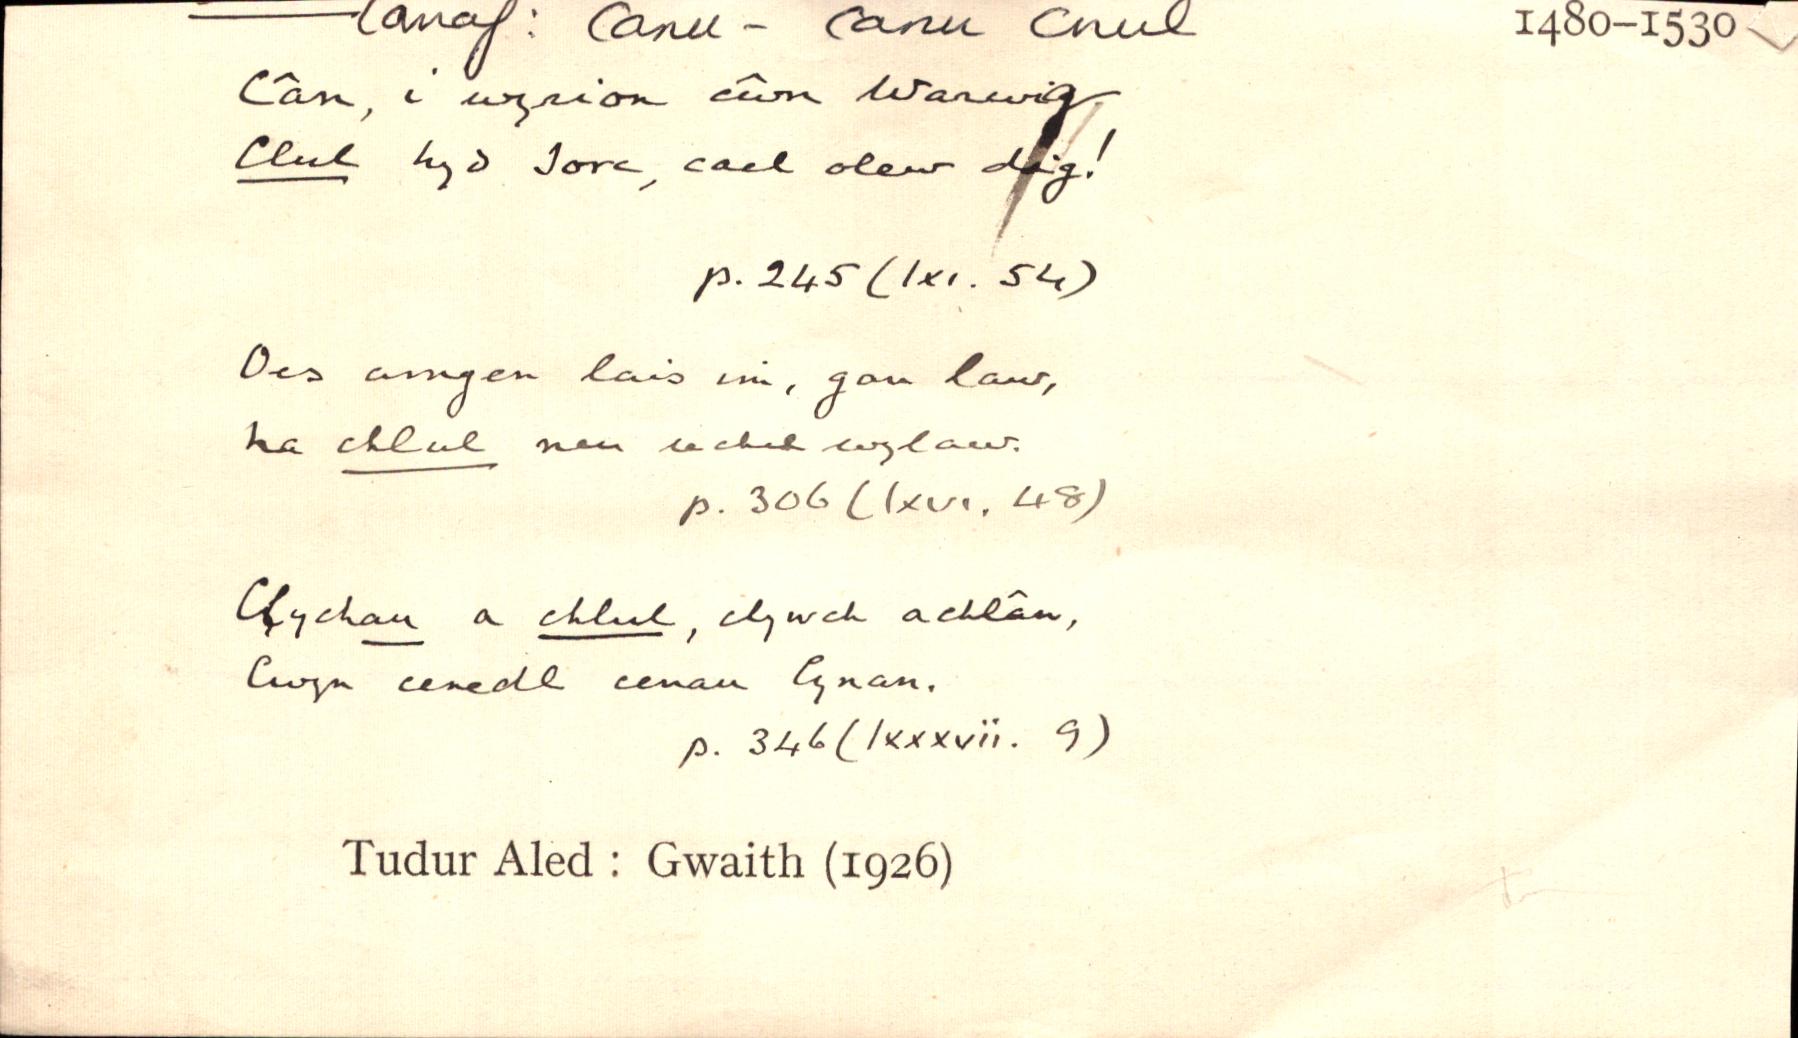 canaf: canu – canu cnul 1480–1530
Cân, i wyrion cŵn Warwig
Clul hyd Iorc, cael olew dig!
p. 245 (lxi. 54)
Oes amgen lais im, gan law,
na chlul neu uchel wylaw.
p. 306 (lxvi. 48)
Clychau a chlul, clywch achlân,
Cwyn cenedl cenau Cynan.
p. 346 (lxxxvii. 9)
Tudur Aled : Gwaith (1926)